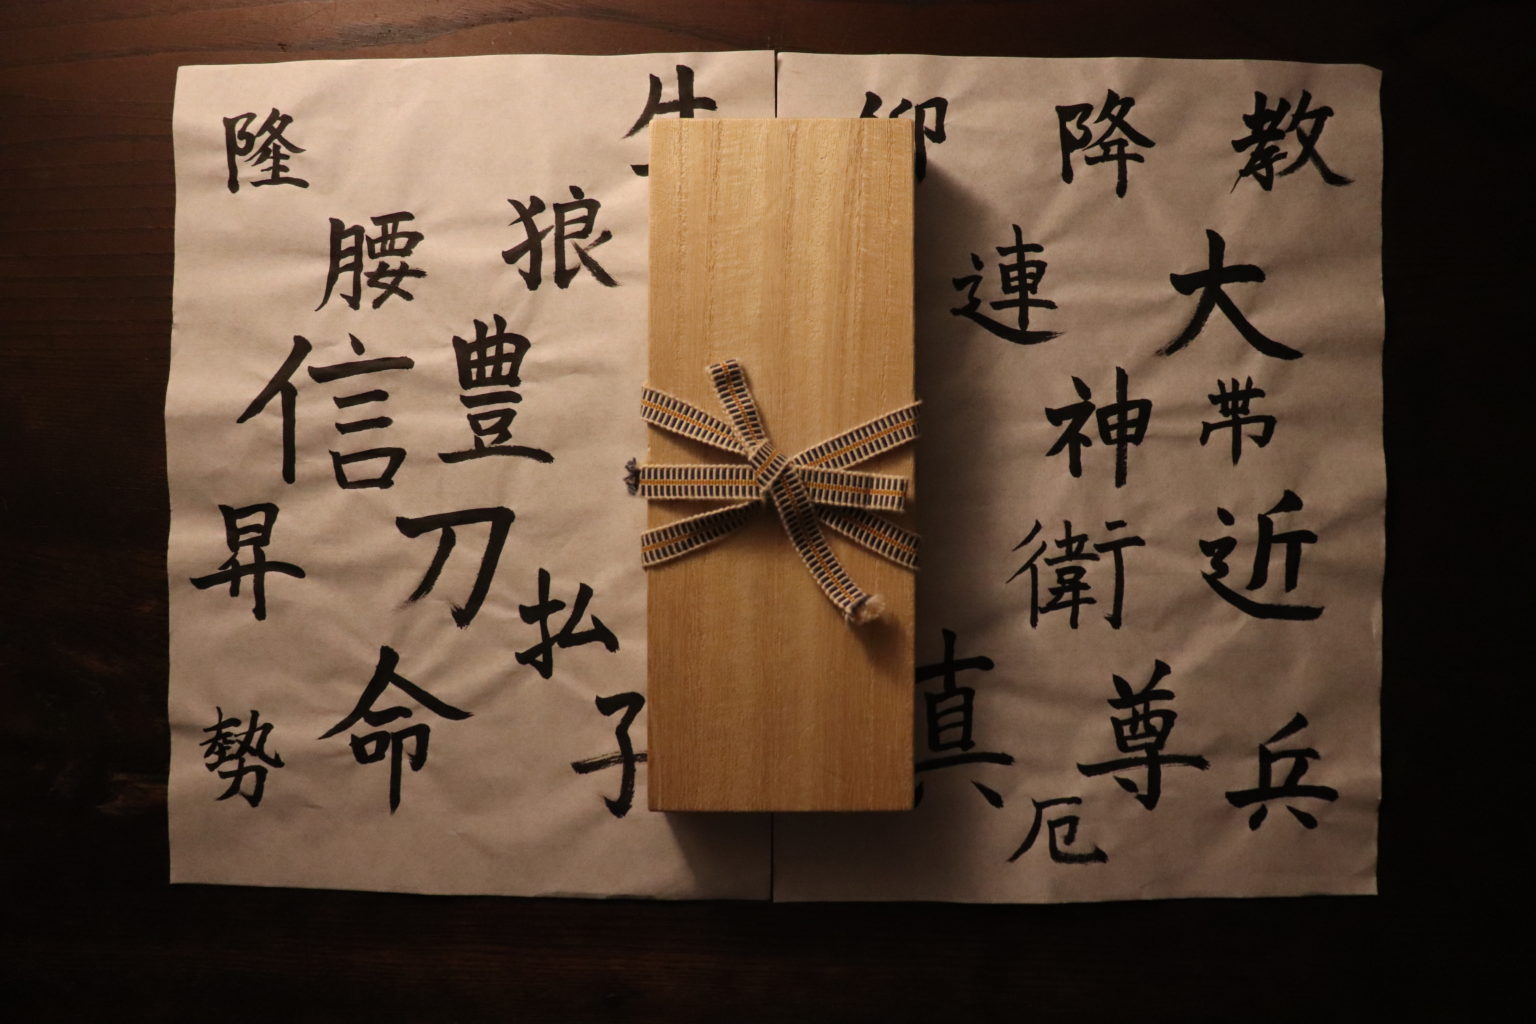 隆
腰
狼
信
豊
昇
刀
払
勢
命
子
降
教
連
大
神
帯
衛
近
真
尊
兵
厄